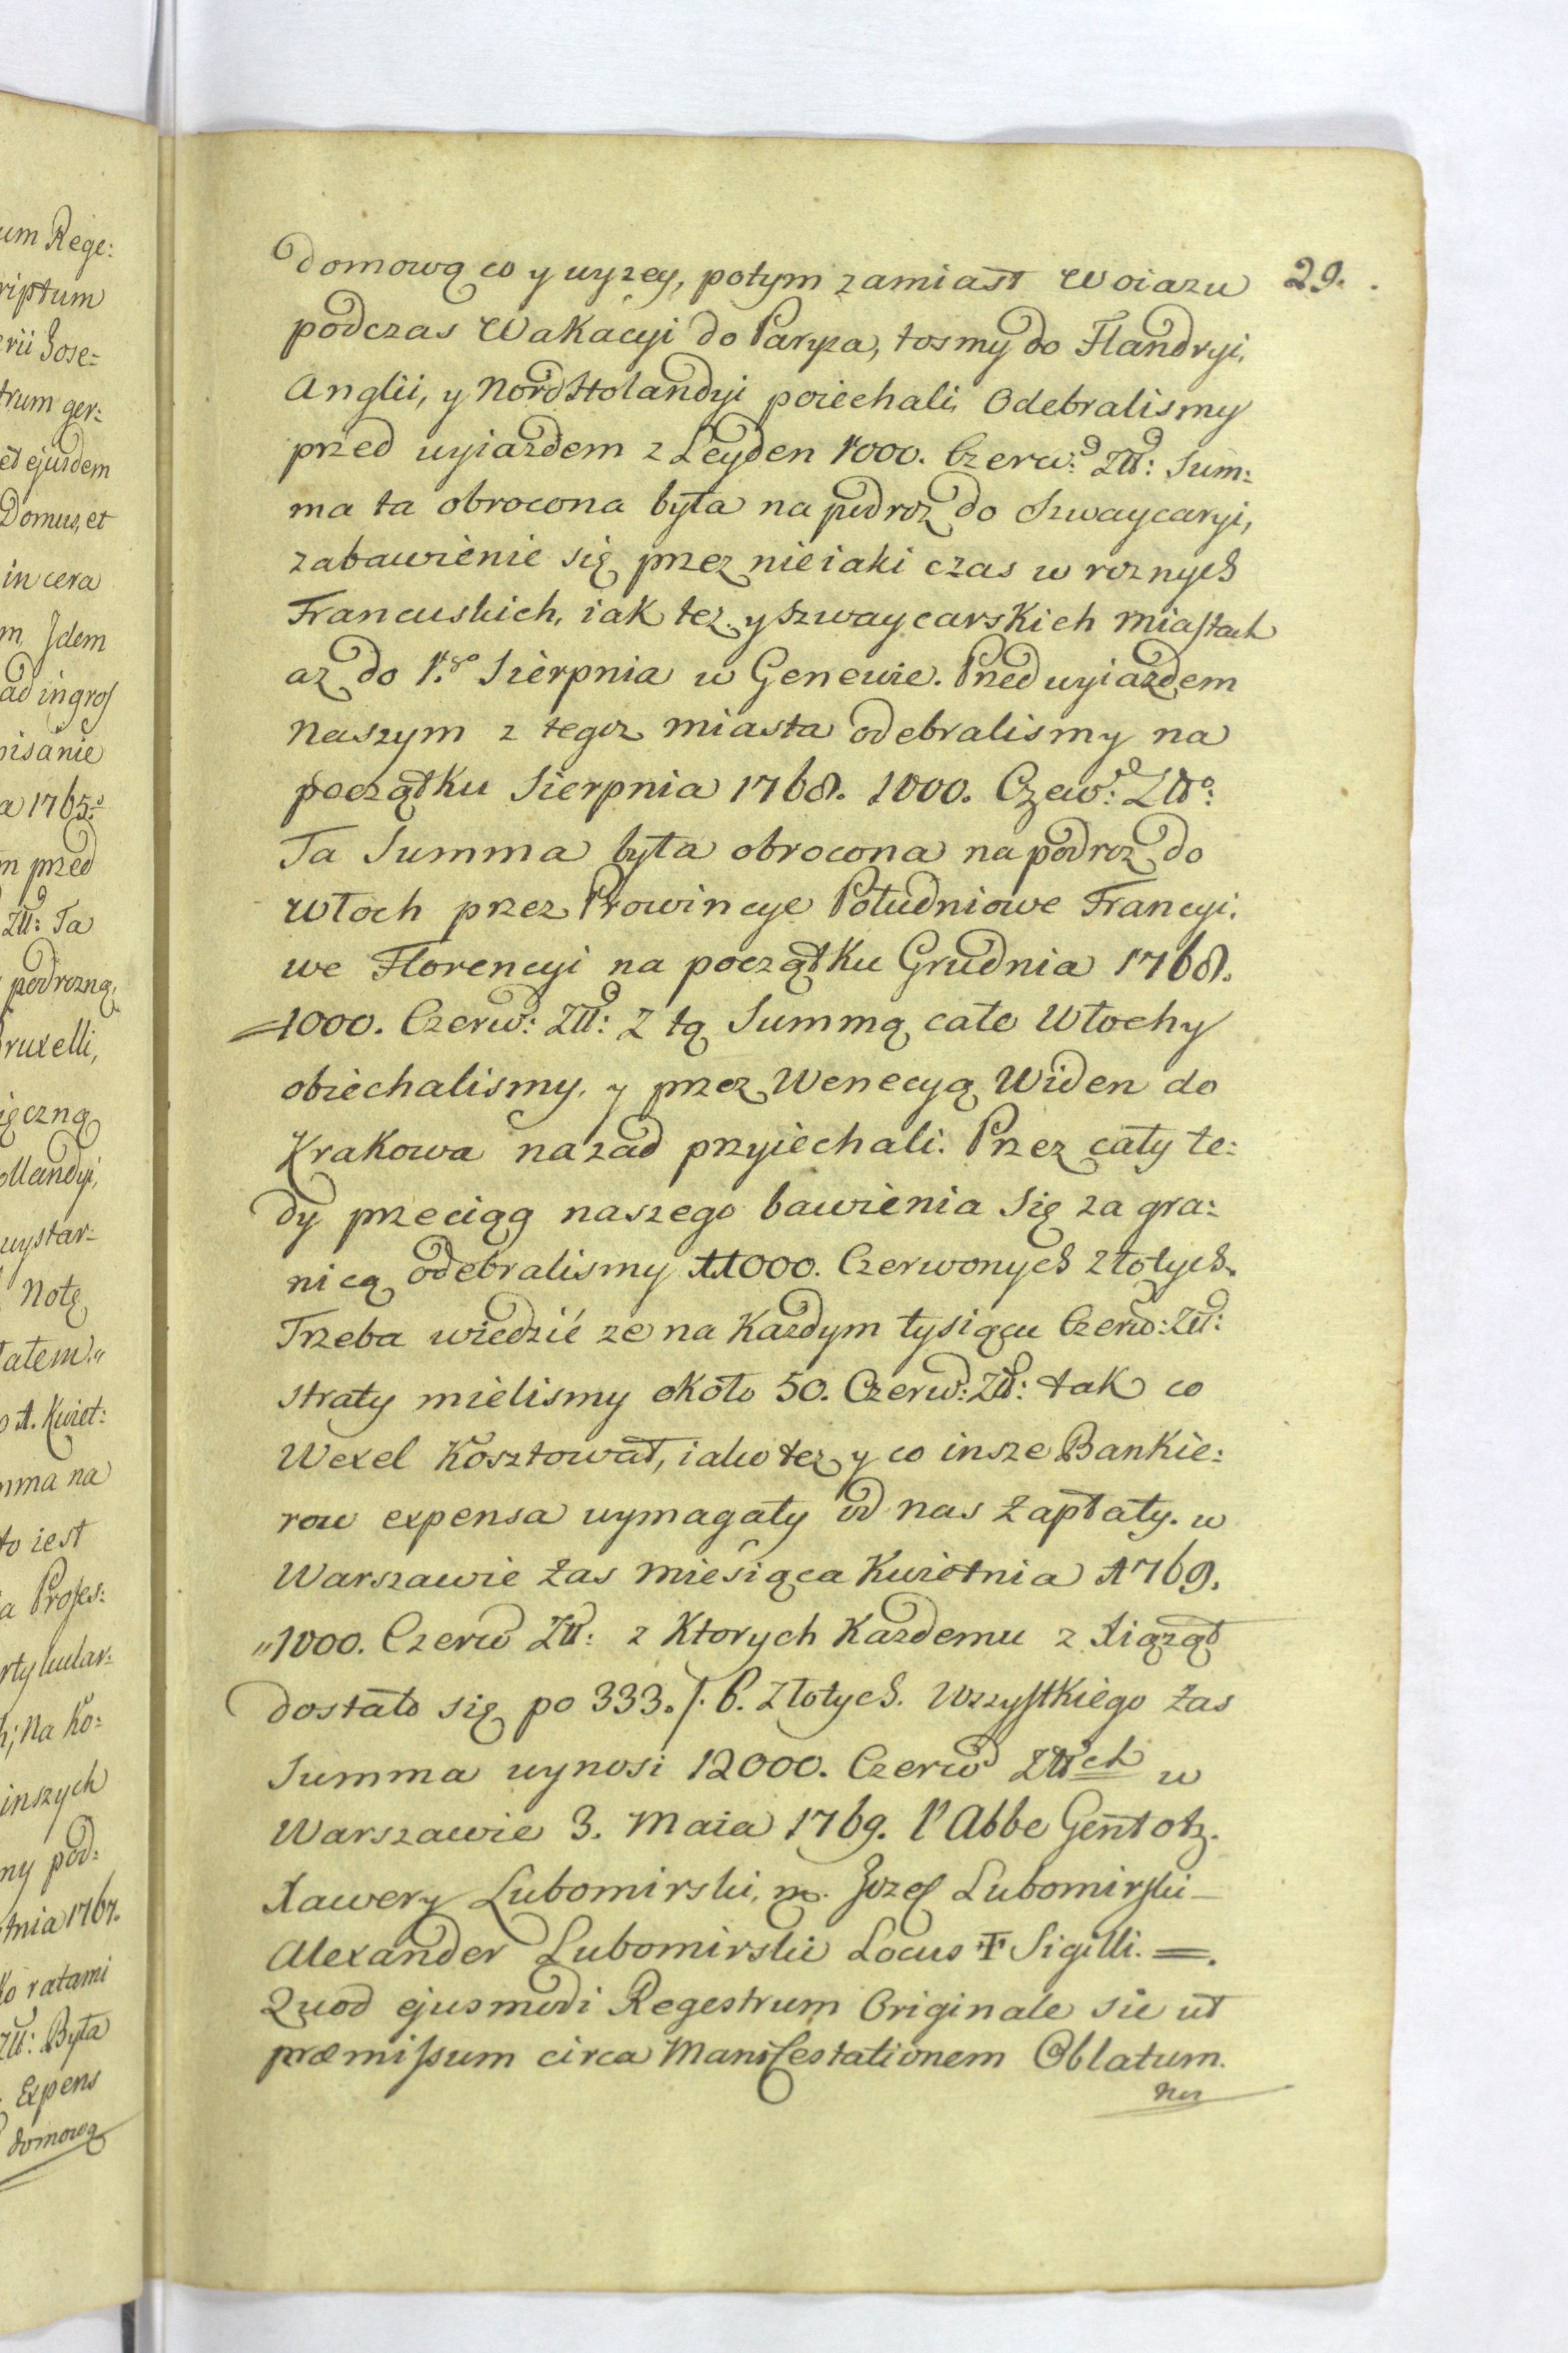 um Rege:
riptum
erii Jose=
trum ger:
et ejusdem
Domus, et
in cera
m Idem
ad ingros
pisanie
a 1765.
m przed
Zł: Ta
podrozną,
Bruxelli,
ięczną
ollandyi,
wystar=
Notę
tatem."
o 1. Kwiet:
mma na
to iest
a Profes:
rtykular:
h; na ko:
inszych
ny pod:
tnia 1767.
ko ratami
Zł: Była
Expens
domową
29.
domową co y wyzey, potym zamiast Woiazu
podczas Wakacyi do Paryza, tosmy do Flandryi,
Anglii, y Nord Holandyi poiechali, Odebralismy
przed wyiazdem z Leyden 1000. Czerw: Zł: Sum:
ma ta obrocona była na podroz do Szwaycaryi,
zabawienie się przez nieiaki czas w roznych
Francuskich, iak tez y Szwaycarskich miastach
az do 1.go Sierpnia w Genewie. Przed wyiazdem
naszym z tegoz miasta odebralismy na
początku Sierpnia 1768. 1000. Czew: Zło:
Ta Summa była obrocona na podroz do
Włoch przez Prowincye Południowe Francyi.
we Florencyi na początku Grudnia 1768.
=1000. Czerw: Zł: Z tą Summą całe Włochy
obiechalismy, y przez Wenecyą Widen do
Krakowa nazad przyiechali. Przez cały te:
dy przeciąg naszego bawienia się za gra:
nicą odebralismy 11000. Czerwonych złotych.
Trzeba wiedzić ze na Kazdym tysiącu Czerw: Zł:
straty mielismy około 50. Czerw: Zł: tak co
Wexel Kosztował, iako tez y co insze Bankie:
row expensa wymagały od nas zapłaty. w
Warszawie zas miesiąca Kwietnia 1769.
"1000. Czerw Zł: z Ktorych Kazdemu z Xiąząt
dostało się po 333. /. 6. Złotych. Wszystkiego zas
Summa wynosi 12000. Czerw Złch w
Warszawie 3. Maia 1769. l'Abbe Gentotz.
Xawery Lubomirski, m. Jozef Lubomirski_
Alexander Lubomirski Locus † Sigilli. =.
Quod ejusmodi Regestrum Originale sic ut
præmissum circa Manifestationem Oblatum.